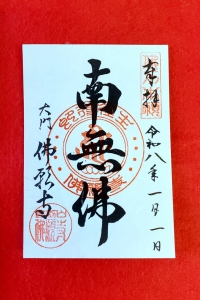 奉拝
令和八年一月一日
南無佛
大門
佛願寺